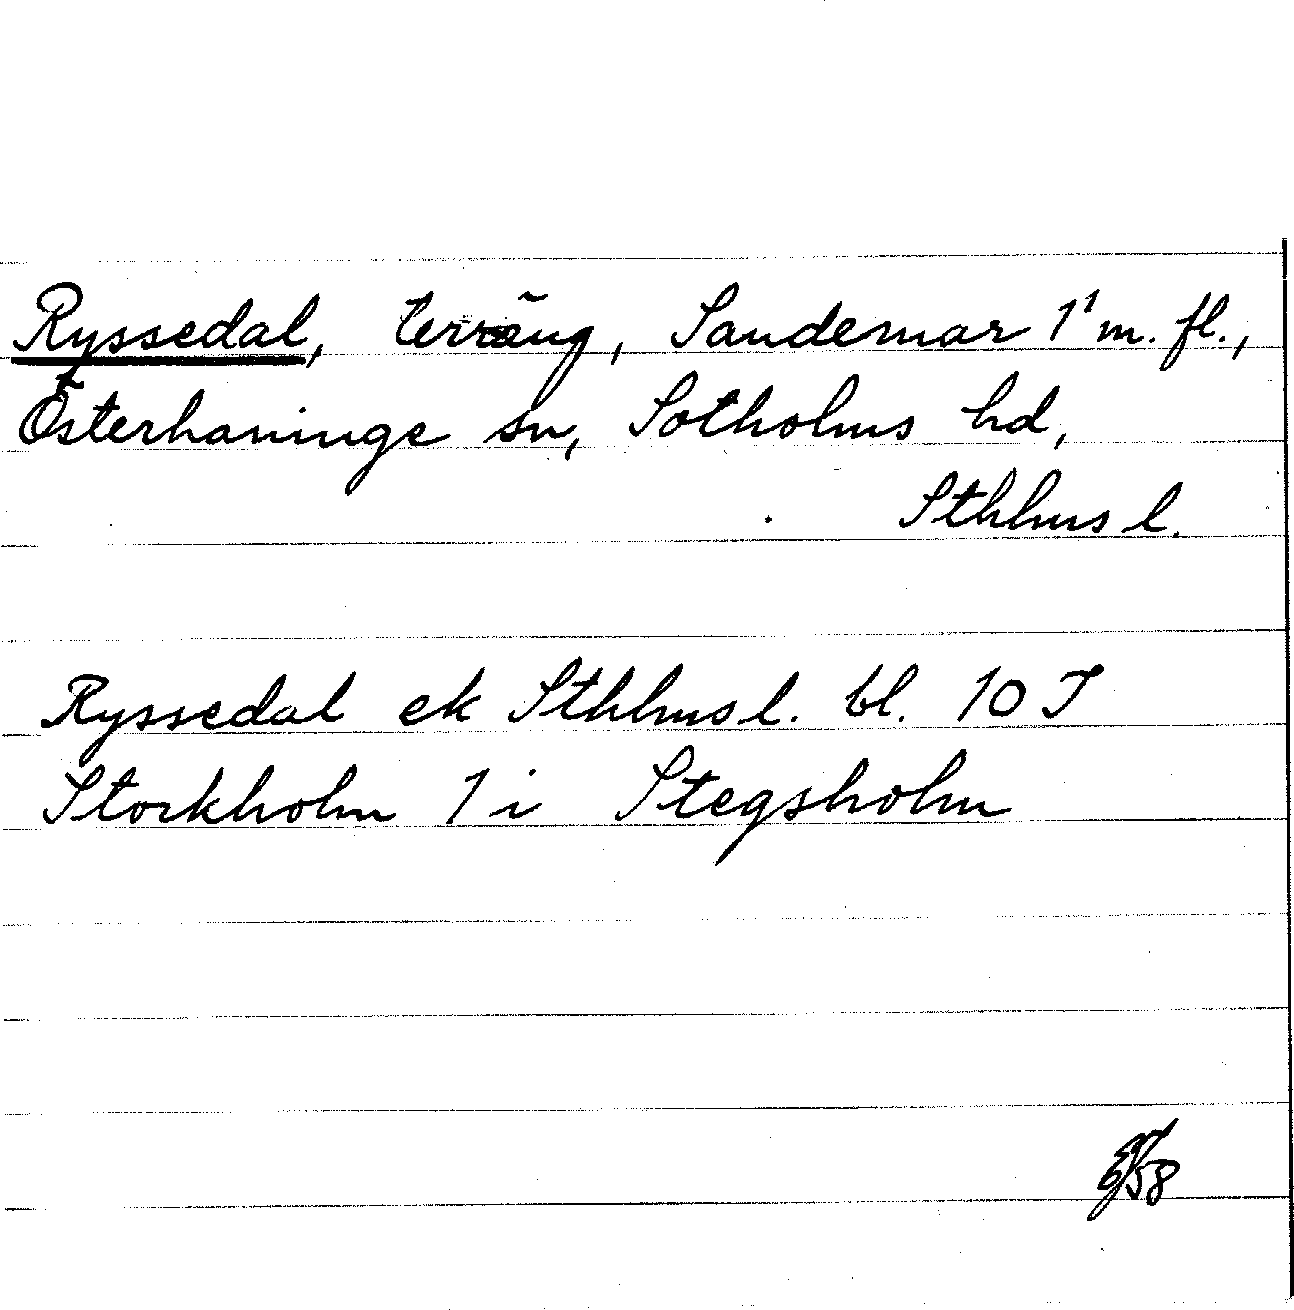 Ryssedal, terräng, Sandemar 1¹ m. fl.,
Österhaninge sn, Sotholms hd,
Sthlms l.
Ryssedal ek Sthlms l. bl. 10 I
Storkholm 1 i Stegsholm
58